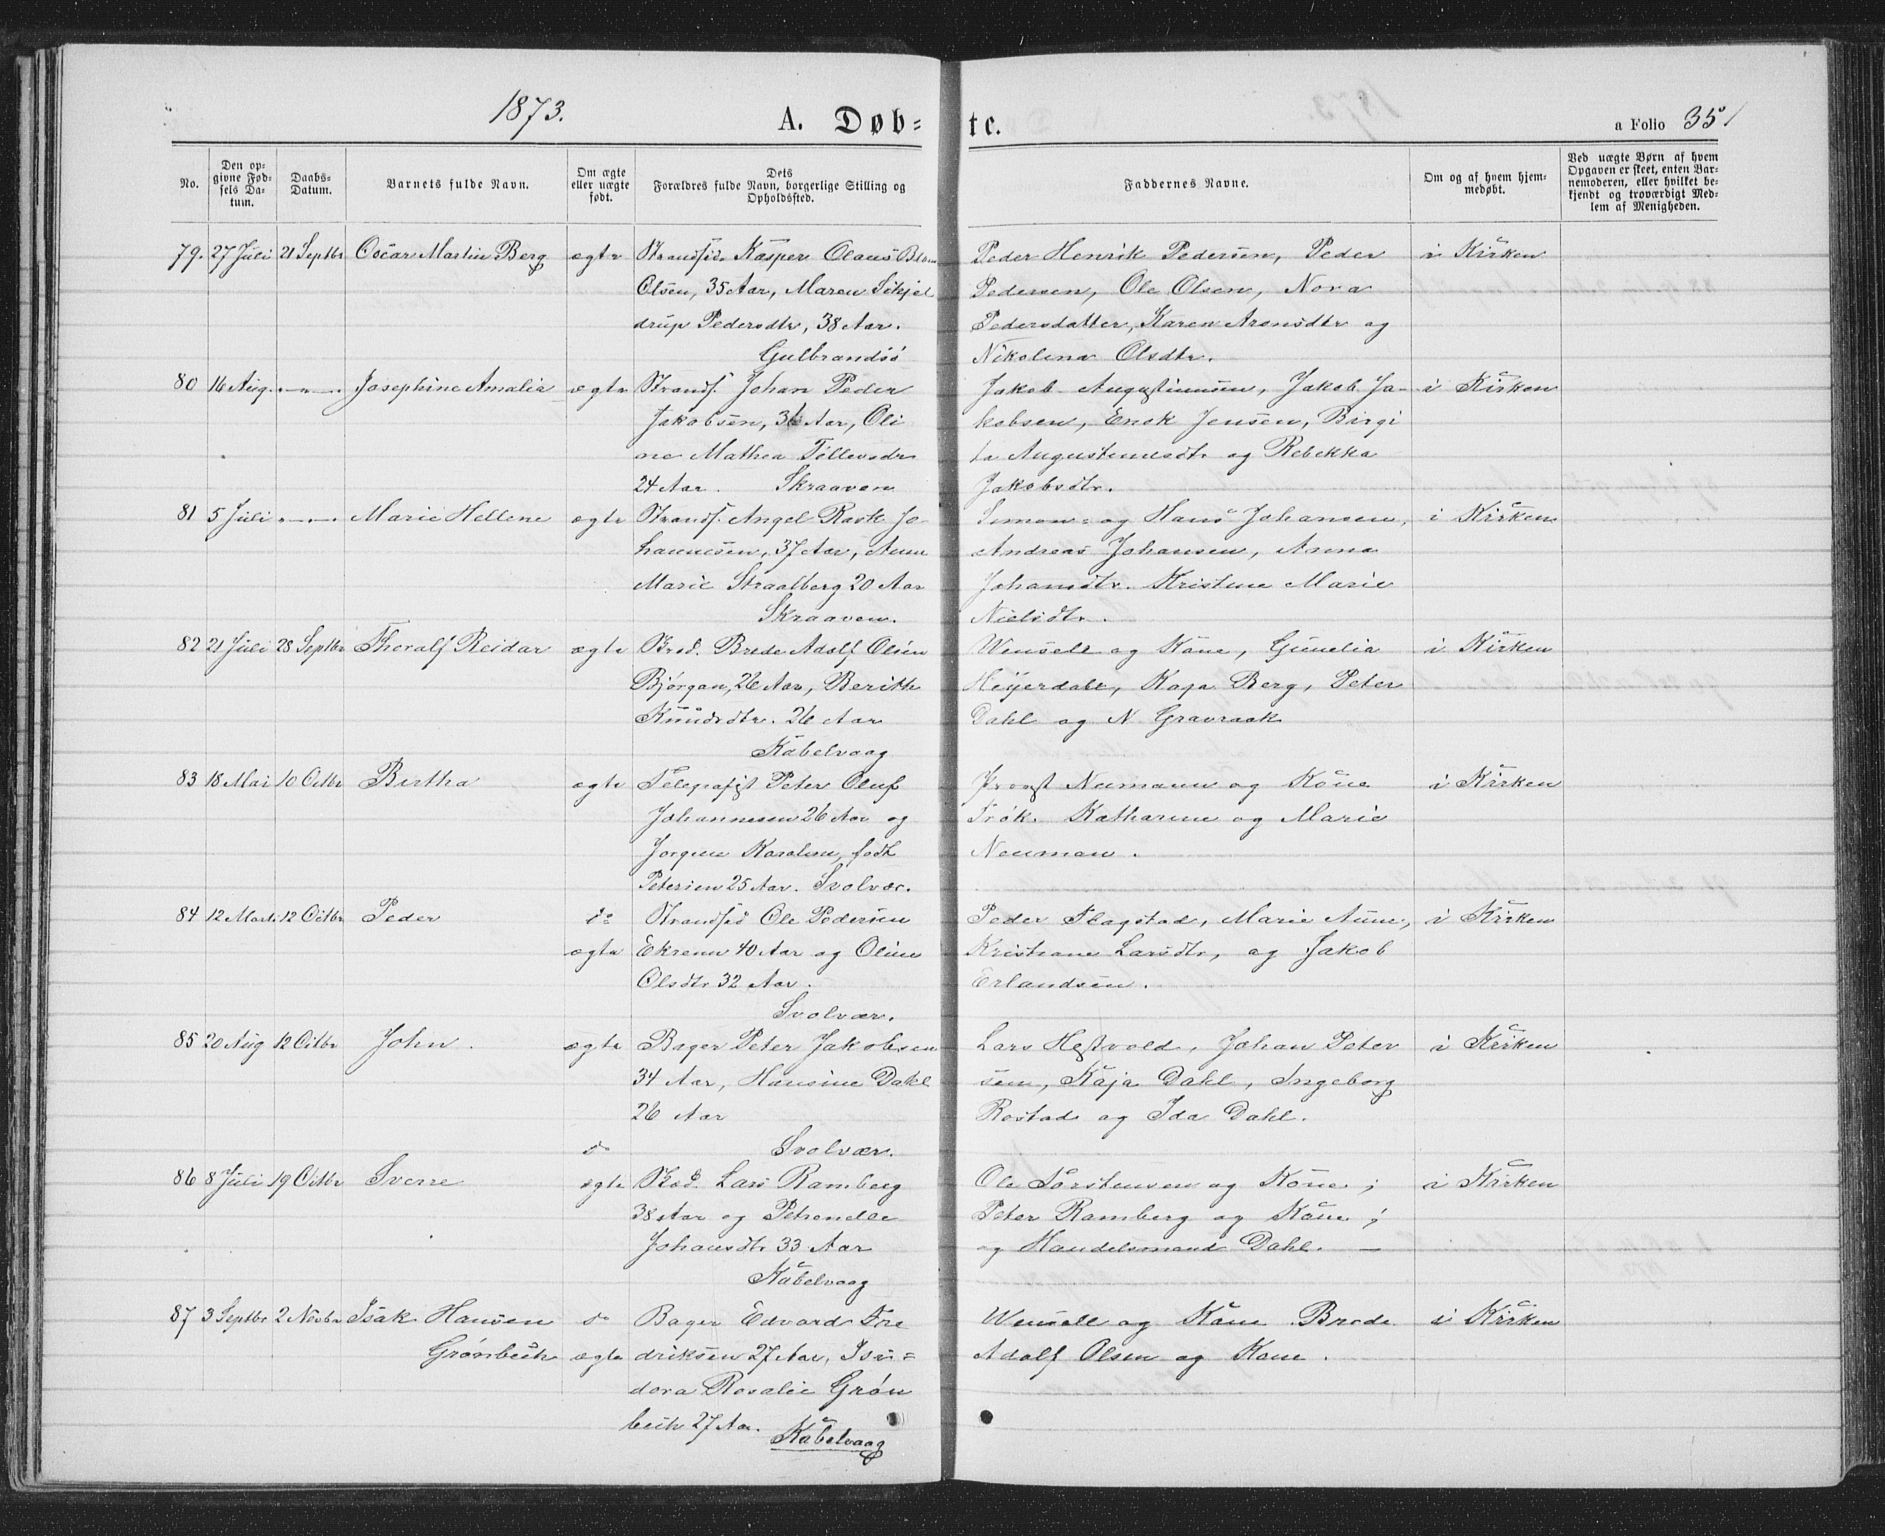 1873.
A. Døb-
te.
a Folio 35
No.
Den op-
givne Fød-
sels Da-
tum.
Daabs-
Datum.
Barnets fulde Navn.
Om ægte
eller uægte
født.
Dets
Forældres fulde Navn, borgerlige Stilling og
Opholdssted.
Faddernes Navne.
Om og af hvem hjem-
medøbt.
Ved uægte Børn af hvem
Opgaven er skeet, enten Bar-
nemoderen, eller hvilket be-
kjendt og troværdigt Med-
lem af Menigheden.
79. 27 Juli 21 Septbr Oscar Martin Berg ægte Strandsid. Kasper Olaus
Olsen, 35 Aar, Maren Schjel
drup Pedersdtr, 38 Aar.
Gulbrandsø
Peder Henrik Pedersen, Peder
Pedersen, Ole Olsen, Nora
Pedersdatter, Karen Aronsdtr og
Nikolina Olsdtr.
i Kirken
80 16 Aug. -"- Josephine Amalia ægte Strands. Johan Peder
Jakobsen, 36 Aar, Oli
ne Mathea Tollevsdr
24 Aar. Skraaven
Jakob Augustinussen, Jakob Ja-
kobsen, Enok Jensen, Birgi
ta Augustinusdtr og Rebekka
Jakobsdtr.
i Kirken
81 5 Juli -"- Marie Hellene ægte Strands. Angel Rask Jo
hannesen, 37 Aar, Anne
Marie Straalberg 20 Aar
Skraaven.
Simon- og Hans Johansen,
Andreas Johansen, Anna
Johansdtr. Kristine Marie
Nielsdtr.
i Kirken
82 21 Juli 28 Septbr Thoralf Reidar ægte Brede Adolf Olsen
Bjørgan, 26 Aar, Berith
Knudsdtr. 26 Aar
Kabelvaag
Wensell og Kone, Gunelia
Heyerdahl, Kaja Berg, Peter
Dahl og N Gravraak
i Kirken
83 18 Mai 10 Octbr Bertha ægte Telegrafist Peter Oluf
Johannesen 26 Aar og
Jørgine Karoline, født
Petersen 25 Aar. Svolvær.
Provst Neumann og Kone
Frøk. Katharine og Marie
Neuman.
i Kirken
84 12 Marts 12 Octbr Peder do
ægte
Strandsid Ole Pedersen
Ekrenn 40 Aar og Oline
Olsdtr 32 Aar.
Svolvær.
Peder Flagstad, Marie Aune,
Kristiane Larsdtr, og Jakob
Erlandsen.
i Kirken
85 20 Aug 12 Octbr John. ægte Bager Peter Jakobsen
34 Aar, Hansine Dahl
26 Aar
Svolvær.
Lars Hestvold, Johan Peter
sen, Kaja Dahl, Ingeborg
Rostad og Ida Dahl.
i Kirken
86 8 Juli 19 Octbr Sverre do
ægte
Lars Ramberg
38 Aar og Petronelle
Johansdtr 33 Aar
Kabelvaag
Ole Torstensen og Kone;
Peter Ramberg og Kone;
og Handelsmand Dahl.
i Kirken
87 3 Septbr 2 Novbr Isak Hansen
Grønbech
do
ægte
Bager Edvard Fre
driksen 27 Aar, Isi-
dora Rosalie Grøn
bech 27 Aar.
Kabelvaag
Wensell og Kone. Brede
Adolf Olsen og Kone.
i Kirken